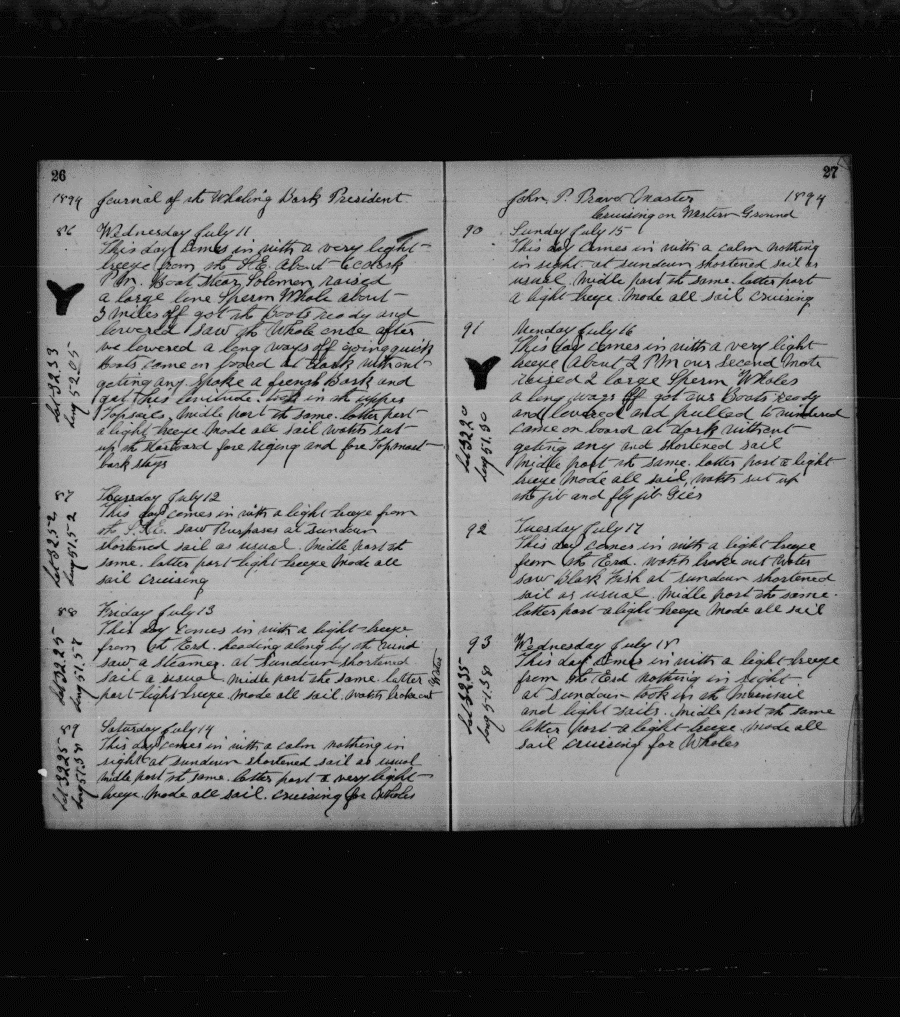 26
1894 Journal of the Whaling Bark President
86 Wednesday July 11
This day Comes in with a very light
breeze from the S.E. about 6 oclock
P M. Boat stear Solomon raised
a large lone Sperm Whale about
3 miles off got the Boats ready and
lowered I saw the Whale once after
we lowered a long ways off going quick
Boats came on board at dark without
geting any. Spoke a french Bark and
got this lonitude. took in the uppes
Topsails. Midle part the same. latter part
a light breeze Made all sail watch sat
up the starboard fore riging and fore Topmast
back stays
Lat 32.33
Long 52.05
87 Thursday July 12
This day comes in with a light breeze from
the S.E. saw Purpases at Sundown
shortened sail as usual. Midle part the
same. latter part light breeze Made all
sail cruising
Lat 32.52
Long 51.52
88 Friday July 13
This day comes in with a light breeze
from the Erd. heading along by the wind
saw a steamer. at Sundown shortened
sail a usual midle part the same. latter
part light breeze Made all sail. watch broke out Water
Lat 32.25
Long 51.57
89 Saturday July 14
This day comes in with a calm nothing in
sight at sundown shortened sail as usual
midle part the same. latter part a very light
breeze Made all sail. cruising for Wholes
Lat 32.25
Long 51.38
27
John P. Master 1894
Cruising on Western Ground
90 Sunday July 15
This day comes in with a calm nothing
in sight. at sundown shortened sail as
usual Midle part the same. latter part
a light breeze. Made all sail cruising
91 Munday July 16
This day comes in with a very light
breeze about 2 P M our second Mate
raised 2 large Sperm Wholes
a long ways off got our Boats ready
and lowered and pulled to
came on board at dark without
geting any and shortened sail
Midle part the same. latter part a light
breeze Made all sail, watch set up
the jib and fly jib Gies
Lat 32.20
Long 51.30
92 Tuesday July 17
This day comes in with a light breeze
from the Erd. watch broke out Water
saw Black Fish at sundown shortened
sail as usual. Midle part the same.
latter part a light breeze Made all sail
93 Wednesday July 18
This day Comes in with a light breeze
from the Erd nothing in sight
at sundown took in the Mainsail
and light sails. Midle part the same
latter part a light breeze Made all
sail cruising for Wholes
Lat 32.35
Long 51.38